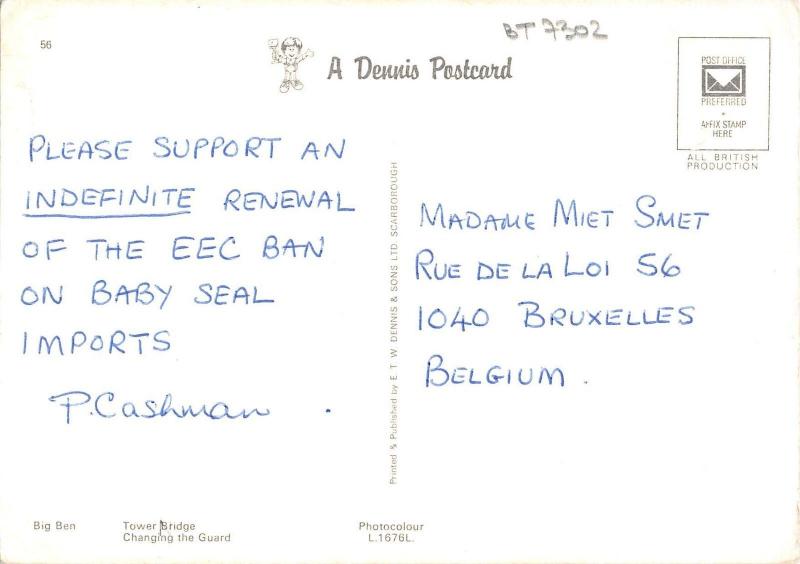 56
BT 7302
A Dennis Postcard
POST OFFICE
PREFERRED
AFFIX STAMP
HERE
ALL BRITISH
PRODUCTION
PLEASE SUPPORT AN
INDEFINITE RENEWAL
OF THE EEC BAN
ON BABY SEAL
IMPORTS
P. Cashman .
Printed & Published by E. T. W. DENNIS & SONS LTD. SCARBOROUGH
MADAME MIET SMET
RUE DE LA LOI 56
1040 BRUXELLES
BELGIUM .
Big Ben
Tower Bridge
Changing the Guard
Photocolour
L.1676L.